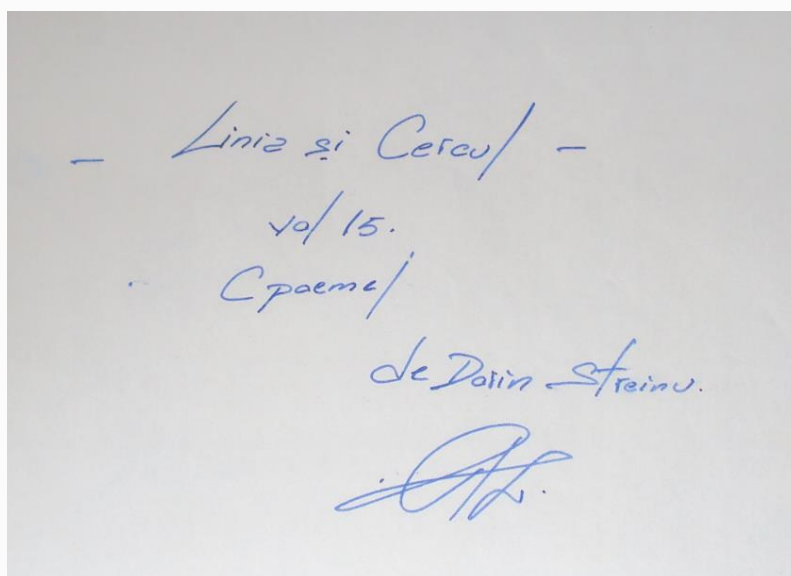 - Linia și Cercul -
vol 15.
(poeme)
de Dorin Streinu.